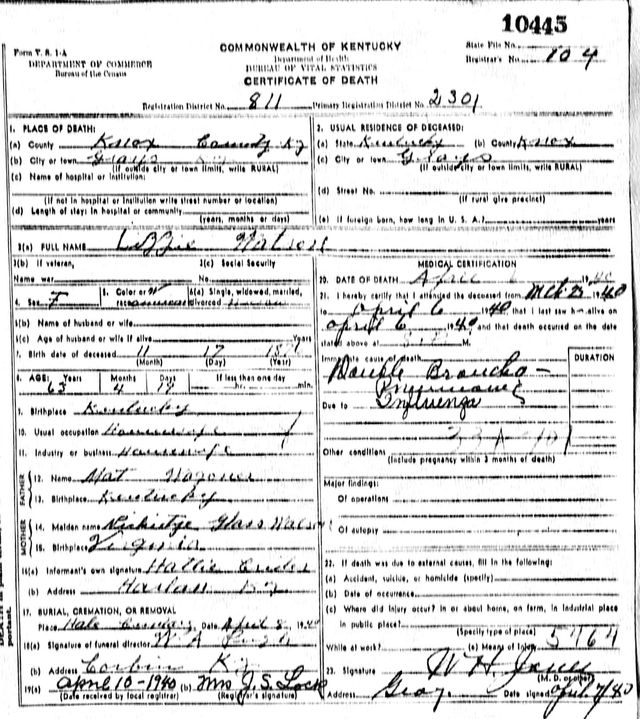 10445
Form V. S. 1-A
DEPARTMENT OF COMMERCE
Bureau of the Census
COMMONWEALTH OF KENTUCKY
Department of Health
BUREAU OF VITAL STATISTICS
CERTIFICATE OF DEATH
State File No.
Registrar's No. 104
Registration District No. 811 Primary Registration District No. 2301
1. PLACE OF DEATH:
(a) County Knox County Ky
(b) City or town Grays Ky
(If outside city or town limits, write RURAL)
(c) Name of hospital or institution:
(If not in hospital or institution write street number or location)
(d) Length of stay: in hospital or community
(years, months or days)
2. USUAL RESIDENCE OF DECEASED:
(a) State Kentucky (b) County Knox
(c) City or town Grays
(If outside city or town limits, write RURAL)
(d) Street No.
(If rural give precinct)
(e) If foreign born, how long in U. S. A.? years
3(a) FULL NAME Lizzie Watson
3(b) If veteran,
Name war
3(c) Social Security
No.
4. Sex F 5. Color or W
race 6(a) Single, widowed, married,
divorced
6(b) Name of husband or wife
6(c) Age of husband or wife if alive Years
7. Birth date of deceased 11 17
(Month) (Day) (Year)
8. AGE: Years Months Days If less than one day
63 4 hr. min.
9. Birthplace Kentucky
10. Usual occupation Housewife
11. Industry or business Housewife
FATHER
12. Name Mat
13. Birthplace Kentucky
MOTHER
14. Maiden name Glass
15. Birthplace Virginia
16(a) Informant's own signature Hallie
(b) Address Harlan Ky
17. BURIAL, CREMATION, OR REMOVAL
Place Date April 8 1940
18(a) Signature of funeral director W A
(b) Address Corbin Ky
19(a) April 10-1940 (b) Mrs J. S. Lock
(Date received by local registrar) (Registrar's signature)
MEDICAL CERTIFICATION
20. DATE OF DEATH April 1940
21. I hereby certify that I attended the deceased from Mch 1940
to April 6 1940 that I last saw h alive on
April 6 1940 and that death occurred on the date
stated above at M.
Immediate cause of death DURATION
Double Broncho-
Pneumonia
Due to Influenza
Other conditions
(Include pregnancy within 3 months of death)
Major findings:
Of operations
Of autopsy
22. If death was due to external causes, fill in the following:
(a) Accident, suicide, or homicide (specify)
(b) Date of occurrence
(c) Where did injury occur? in or about home, on farm, in industrial place
in public place?
(Specify type of place)
While at work? (e) Means of Injury 5464
23. Signature W H Jones
(M. D. or other)
Address Date signed